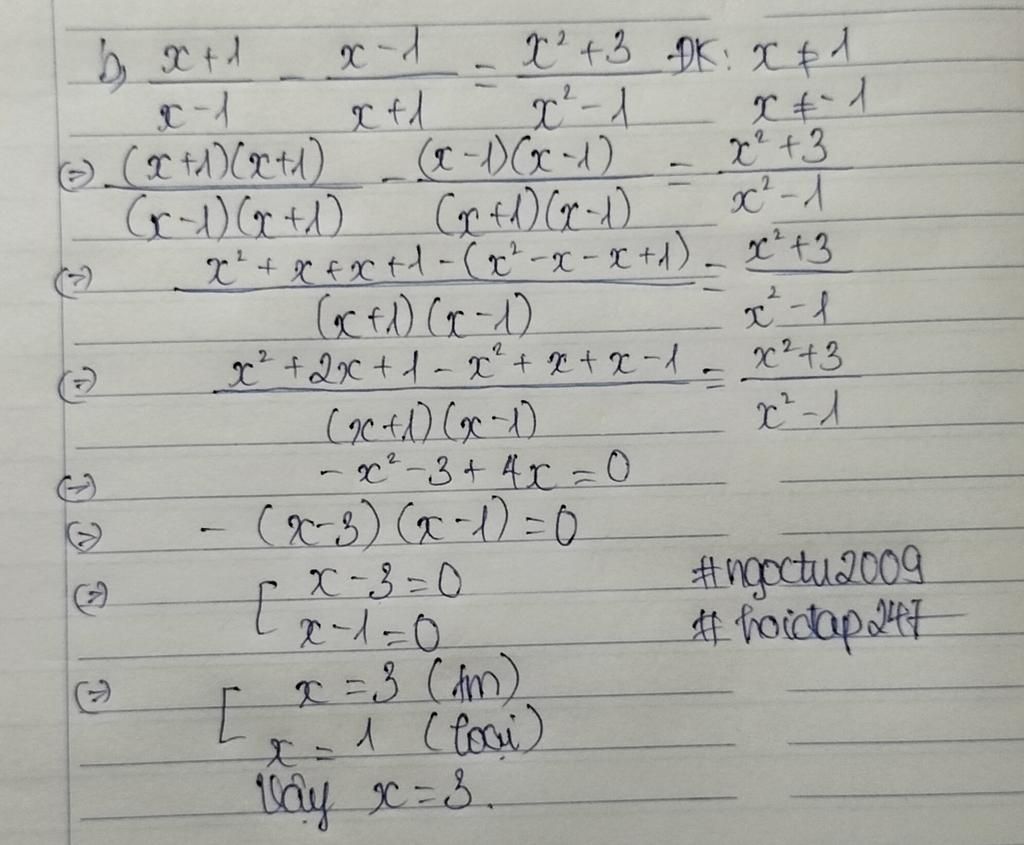 b, (x+1)/(x-1) - (x-1)/(x+1) = (x²+3)/(x²-1) ĐK: x ≠ 1
x ≠ -1
⇔ ((x+1)(x+1))/((x-1)(x+1)) - ((x-1)(x-1))/((x+1)(x-1)) = (x²+3)/(x²-1)
⇔ (x²+x+x+1-(x²-x-x+1))/((x+1)(x-1)) = (x²+3)/(x²-1)
⇔ (x²+2x+1-x²+x+x-1)/((x+1)(x-1)) = (x²+3)/(x²-1)
⇔ -x²-3+4x=0
⇔ -(x-3)(x-1)=0
⇔ [ x-3=0
x-1=0
#ngoctu2009
#hoidap247
⇔ [ x=3 (tm)
x=1 (loại)
Vậy x=3.